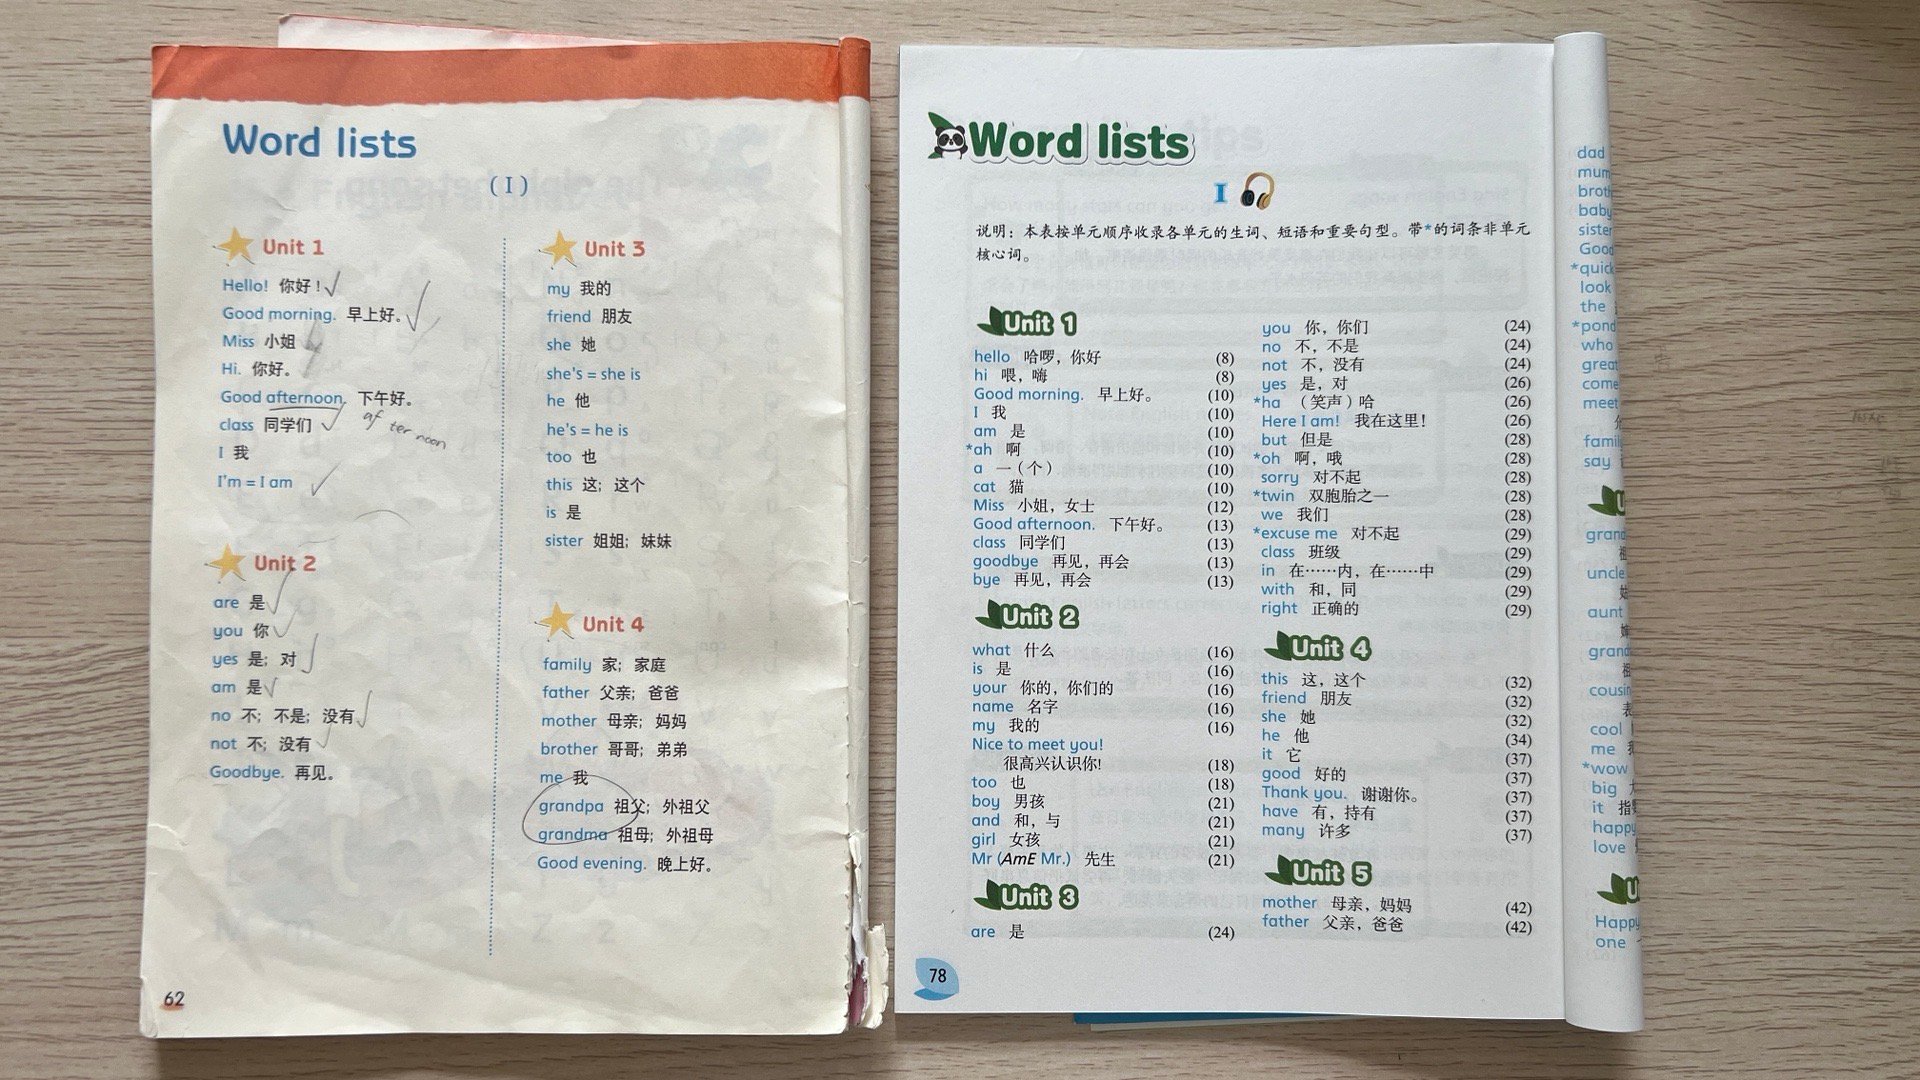 Word lists
( I )
Unit 1
Hello! 你好！
Good morning. 早上好。
Miss 小姐
Hi. 你好。
Good afternoon. 下午好。
af ter noon
class 同学们
I 我
I'm = I am
Unit 2
are 是
you 你
yes 是；对
am 是
no 不；不是；没有
not 不；没有
Goodbye. 再见。
Unit 3
my 我的
friend 朋友
she 她
she's = she is
he 他
he's = he is
too 也
this 这；这个
is 是
sister 姐姐；妹妹
Unit 4
family 家；家庭
father 父亲；爸爸
mother 母亲；妈妈
brother 哥哥；弟弟
me 我
grandpa 祖父；外祖父
grandma 祖母；外祖母
Good evening. 晚上好。
62
Word lists
I
说明：本表按单元顺序收录各单元的生词、短语和重要句型。带*的词条非单元
核心词。
Unit 1
hello 哈啰，你好 (8)
hi 喂，嗨 (8)
Good morning. 早上好。 (10)
I 我 (10)
am 是 (10)
*ah 啊 (10)
a 一（个） (10)
cat 猫 (10)
Miss 小姐，女士 (12)
Good afternoon. 下午好。 (13)
class 同学们 (13)
goodbye 再见，再会 (13)
bye 再见，再会 (13)
Unit 2
what 什么 (16)
is 是 (16)
your 你的，你们的 (16)
name 名字 (16)
my 我的 (16)
Nice to meet you!
很高兴认识你！ (18)
too 也 (18)
boy 男孩 (21)
and 和，与 (21)
girl 女孩 (21)
Mr (AmE Mr.) 先生 (21)
Unit 3
are 是 (24)
you 你，你们 (24)
no 不，不是 (24)
not 不，没有 (24)
yes 是，对 (26)
*ha （笑声）哈 (26)
Here I am! 我在这里！ (26)
but 但是 (28)
*oh 啊，哦 (28)
sorry 对不起 (28)
*twin 双胞胎之一 (28)
we 我们 (28)
*excuse me 对不起 (29)
class 班级 (29)
in 在……内，在……中 (29)
with 和，同 (29)
right 正确的 (29)
Unit 4
this 这，这个 (32)
friend 朋友 (32)
she 她 (32)
he 他 (34)
it 它 (37)
good 好的 (37)
Thank you. 谢谢你。 (37)
have 有，持有 (37)
many 许多 (37)
Unit 5
mother 母亲，妈妈 (42)
father 父亲，爸爸 (42)
78
dad
mum
broth
baby
sister
Good
*quick
look
the
*pond
who
great
come
meet
family
say
U
grand
祖
uncle
aunt
grand
祖
cousin
表
cool
me 我
*wow
big 大
it 指
happy
love
U
Happy
one 一